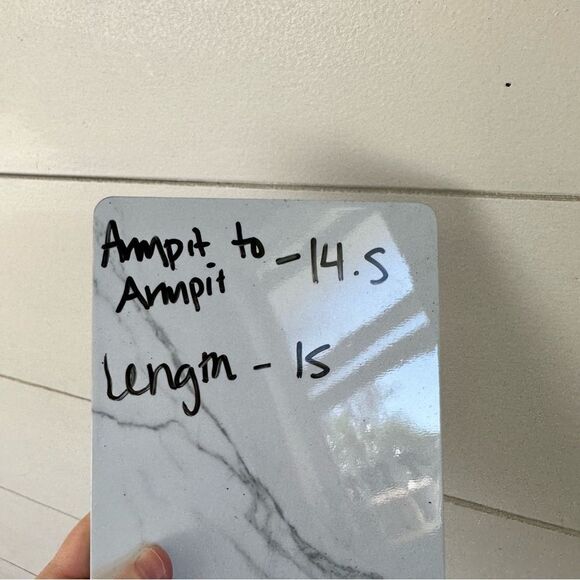 Armpit to
Armpit - 14.5
Length - 15